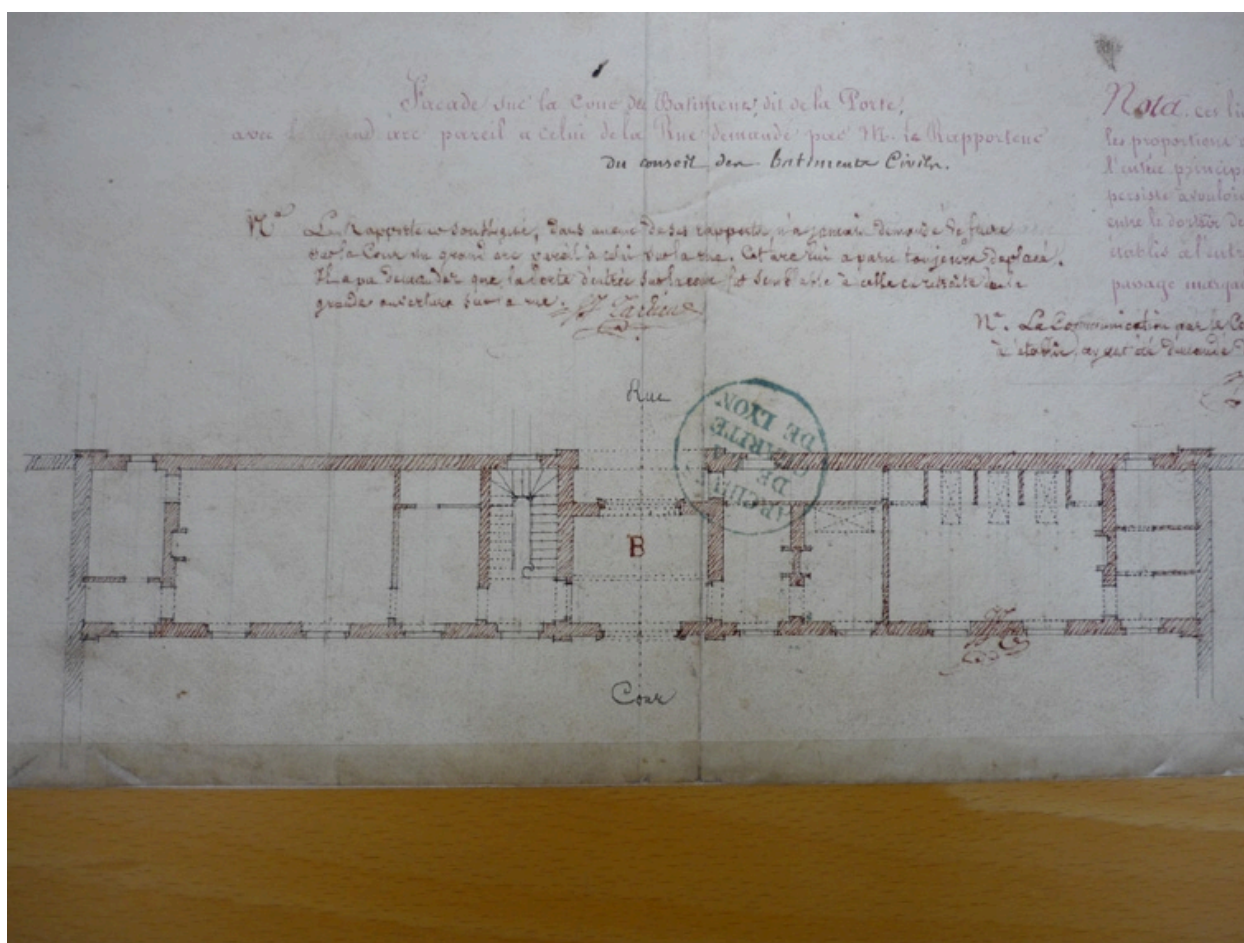 Façade sur la Cour du Batiment, dit de la Porte,
avec le grand arc pareil a celui de la Rue demandé par M. le Rapporteur
du conseil des batiments Civils.
Nª Le Rapporteur soussigné, dans aucun de ses rapports, n'a jamais demandé de faire
sur la Cour un grand arc pareil à celui sur la rue. Cet arc lui a paru toujours déplacé.
Il a pu demander que la porte d'entrée sur la cour fut semblable à celle en retraite de la
grande ouverture sur la rue.
Nota. ces
les proportions
l'entrée
persiste à vouloir
entre le
établis à l'entr
passage
Nª. La Communication par le
à établir, ayant été demandé
Rue
ARCHIVES
DE LA
CHARITÉ
DE LYON
B
Cour